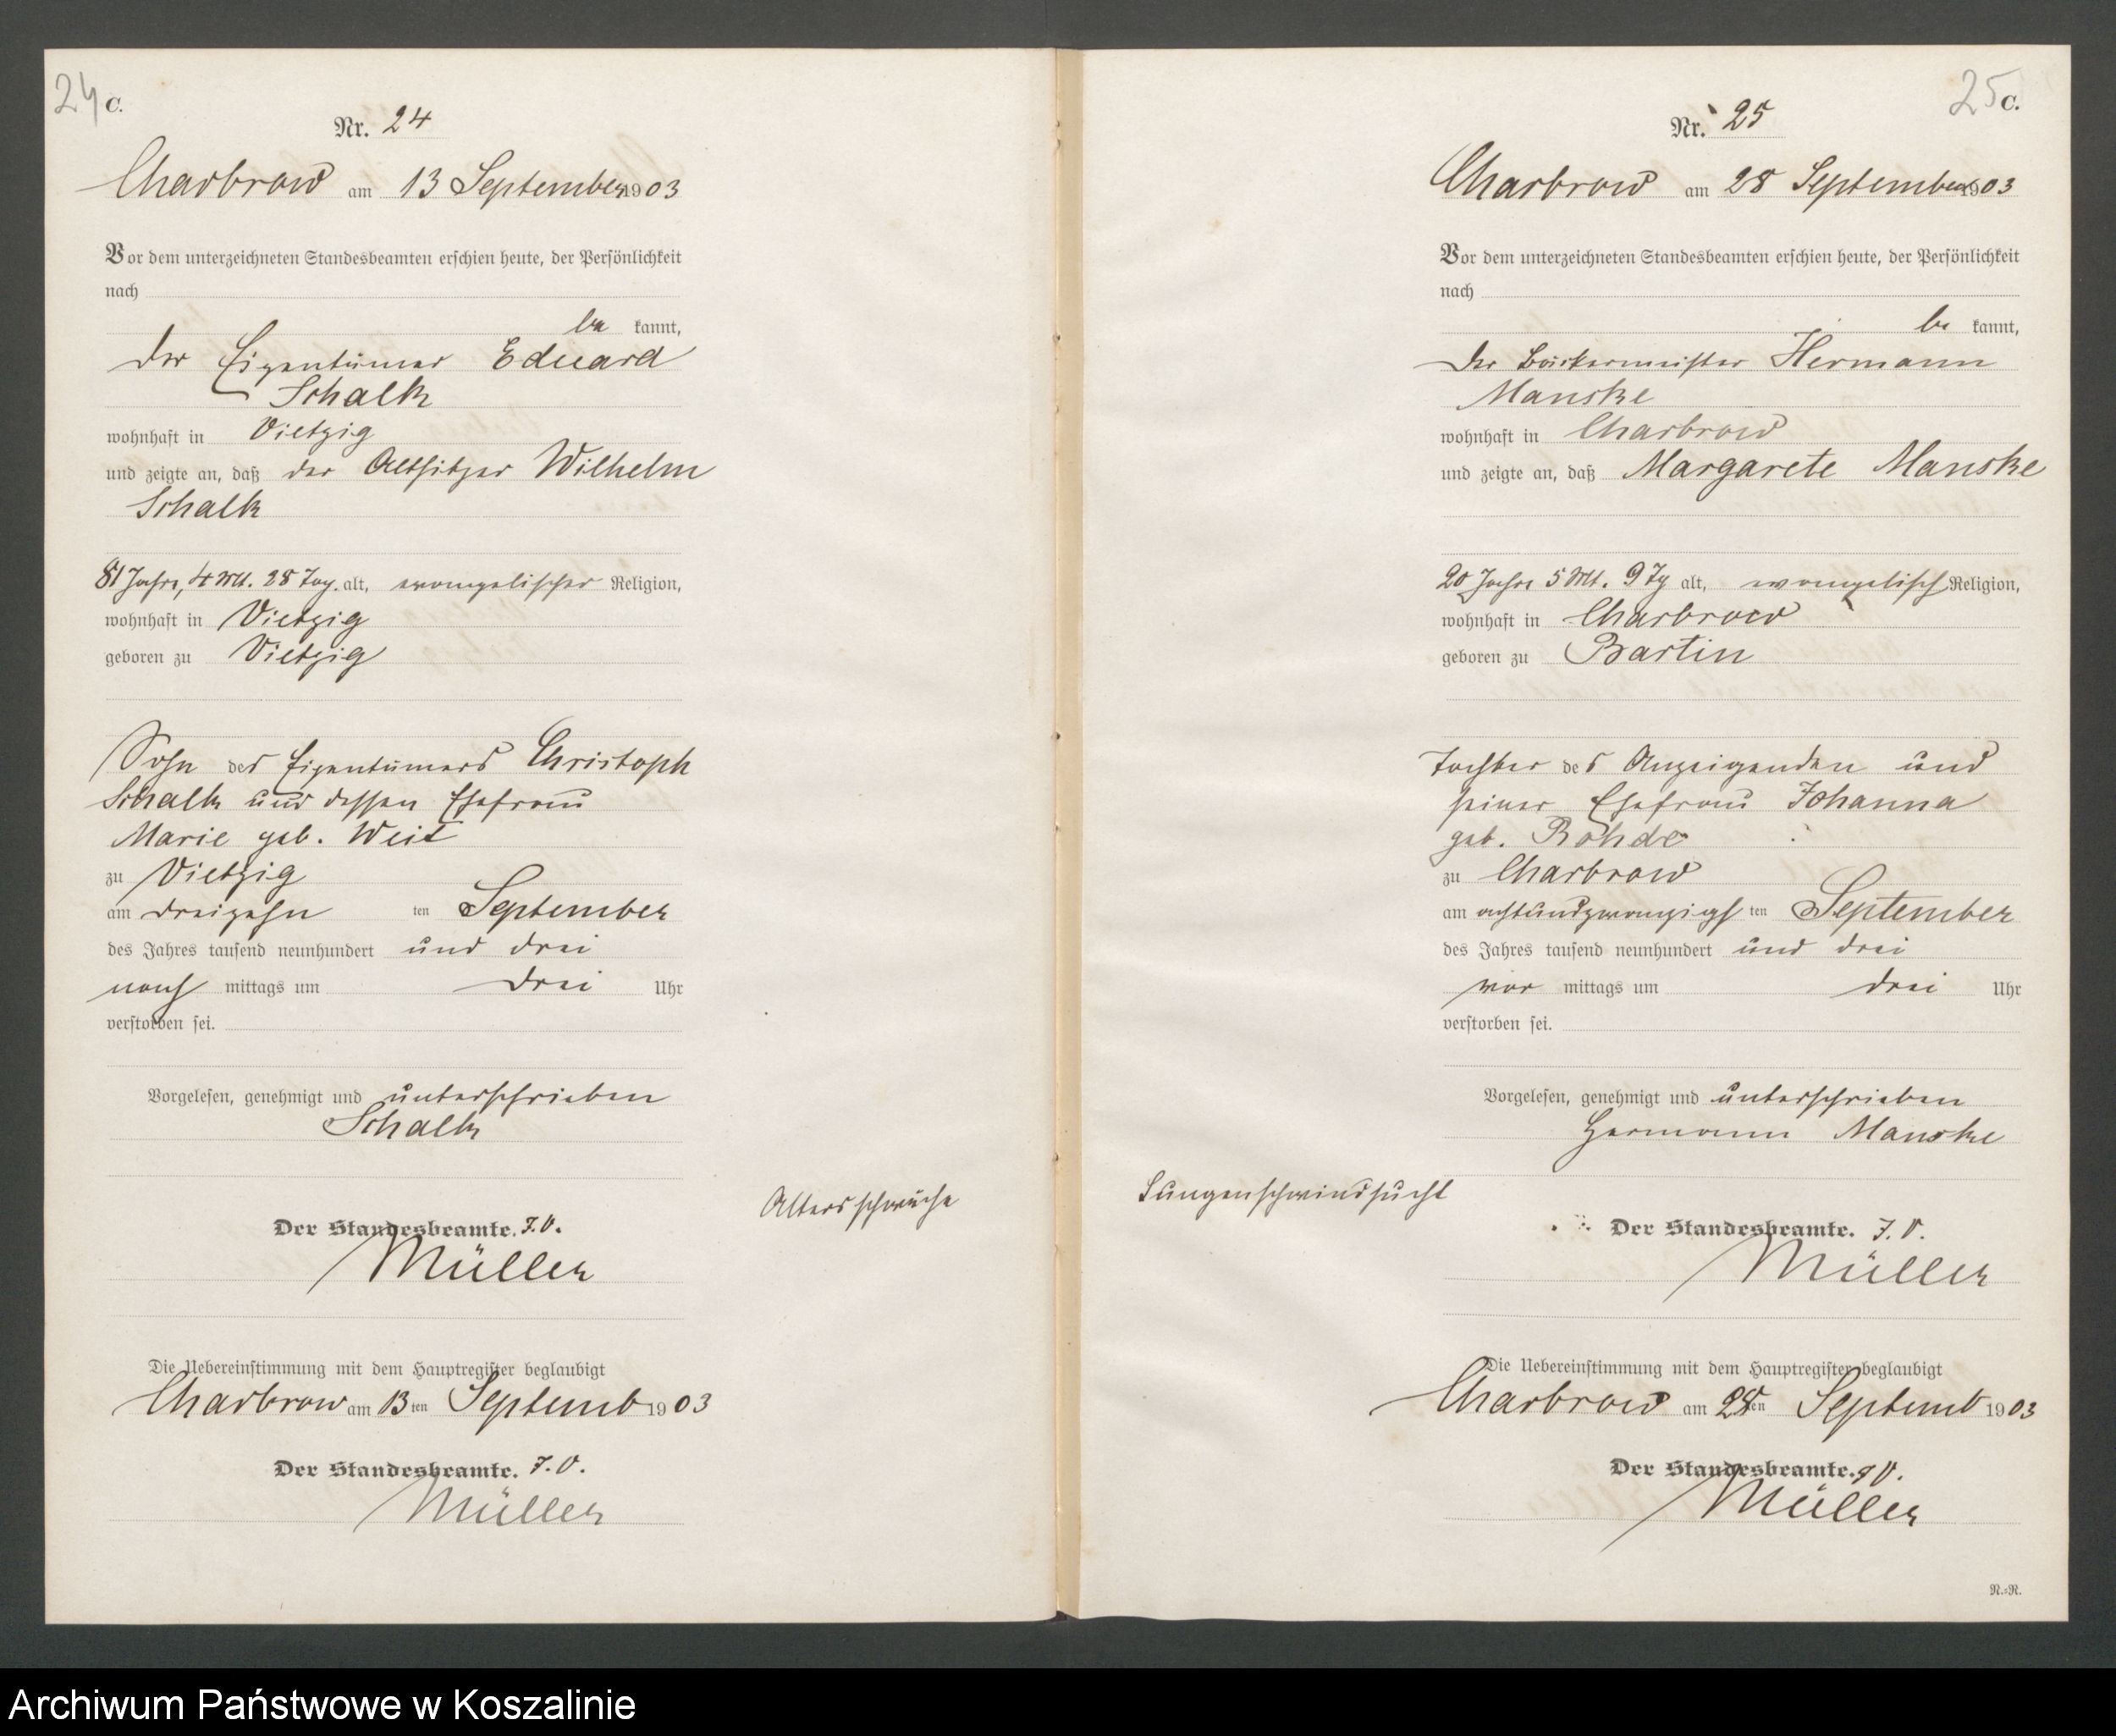 24 C.
Nr. 24
Charbrow am 13 September 1903
Vor dem unterzeichneten Standesbeamten erschien heute, der Persönlichkeit
nach
be kannt,
der Eigentümer Eduard
Schalk
wohnhaft in Vietzig
und zeigte an, daß der Altsitzer Wilhelm
Schalk
81 Jahre, 4 Mt. 28 Tag. alt, evangelischer Religion,
wohnhaft in Vietzig
geboren zu Vietzig
Sohn des Eigentümers Christoph
Schalk und dessen Ehefrau
Marie geb. Weit
zu Vietzig
am dreizehn ten September
des Jahres tausend neunhundert und drei
nach mittags um drei Uhr
verstorben sei.
Vorgelesen, genehmigt und unterschrieben
Schalk
Altersschwäche
Der Standesbeamte. I.V.
Müller
Die Uebereinstimmung mit dem Hauptregister beglaubigt
Charbrow am 13 ten Septemb 1903
Der Standesbeamte. I.V.
Müller
25 C.
Nr. 25
Charbrow am 28 September 1903
Vor dem unterzeichneten Standesbeamten erschien heute, der Persönlichkeit
nach
be kannt,
der Bäckermeister Hermann
Manske
wohnhaft in Charbrow
und zeigte an, daß Margarete Manske
20 Jahre 5 Mt. 9 Tg alt, evangelisch Religion,
wohnhaft in Charbrow
geboren zu Bartin
Tochter des Anzeigenden und
seiner Ehefrau Johanna
geb. Rohde
zu Charbrow
am achtundzwanzigs ten September
des Jahres tausend neunhundert und drei
vor mittags um drei Uhr
verstorben sei.
Vorgelesen, genehmigt und unterschrieben
Hermann Manske
Lungenschwindsucht
Der Standesbeamte. I.V.
Müller
Die Uebereinstimmung mit dem Hauptregister beglaubigt
Charbrow am 28 ten Septemb 1903
Der Standesbeamte. I V.
Müller
N.=R.
Archiwum Państwowe w Koszalinie